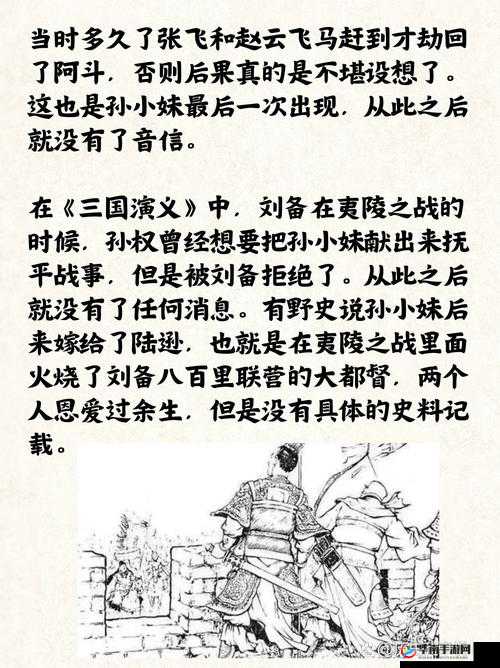 当时多久了张飞和赵云飞马赶到才劫回
了阿斗，否则后果真的是不堪设想了。
这也是孙小妹最后一次出现，从此之后
就没有了音信。
在《三国演义》中，刘备在夷陵之战的
时候，孙权曾经想要把孙小妹献出来抚
平战事，但是被刘备拒绝了。从此之后
就没有了任何消息。有野史说孙小妹后
来嫁给了陆逊，也就是在夷陵之战里面
火烧了刘备八百里联营的大都督，两个
人恩爱过余生，但是没有具体的史料记
载。
华南手游网